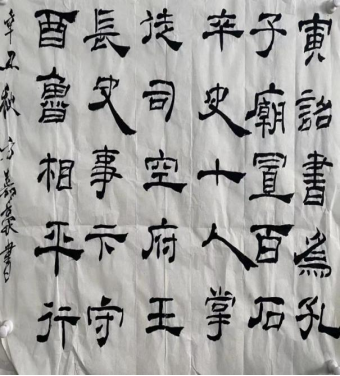 寅詔書為孔
子廟置百石
卒史十人掌
徒司空府壬
長史事下守
酉魯相平行
辛丑秋方嘉豪書